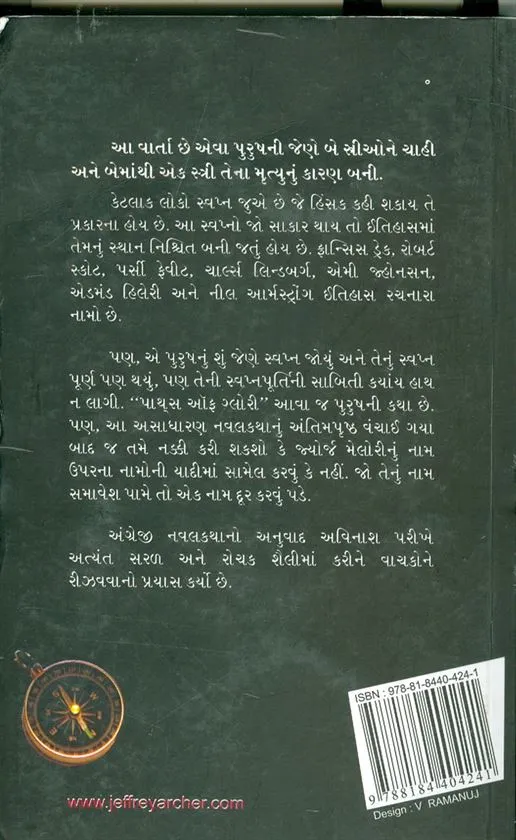 આ વાર્તા છે એવા પુરુષની જેણે બે સ્ત્રીઓને ચાહી
અને બેમાંથી એક સ્ત્રી તેના મૃત્યુનું કારણ બની.
કેટલાક લોકો સ્વપ્ન જુએ છે જે હિંસક કહી શકાય તે
પ્રકારના હોય છે. આ સ્વપ્નો જો સાકાર થાય તો ઈતિહાસમાં
તેમનું સ્થાન નિશ્ચિત બની જતું હોય છે. ફ્રાન્સિસ ડ્રેક, રોબર્ટ
સ્કોટ, પર્સી ફેવીટ, ચાર્લ્સ લિન્ડબર્ગ, એમી જ્હોનસન,
એડમંડ હિલેરી અને નીલ આર્મસ્ટ્રોંગ ઈતિહાસ રચનારા
નામો છે.
પણ, એ પુરુષનું શું જેણે સ્વપ્ન જોયું અને તેનું સ્વપ્ન
પૂર્ણ પણ થયું, પણ તેની સ્વપ્નપૂર્તિની સાબિતી કયાંય હાથ
ન લાગી. “પાથ્સ ઑફ ગ્લોરી” આવા જ પુરુષની કથા છે.
પણ, આ અસાધારણ નવલકથાનું અંતિમપૃષ્ઠ વંચાઈ ગયા
બાદ જ તમે નક્કી કરી શકશો કે જ્યોર્જ મેલોરીનું નામ
ઉપરના નામોની યાદીમાં સામેલ કરવું કે નહીં. જો તેનું નામ
સમાવેશ પામે તો એક નામ દૂર કરવું પડે.
અંગ્રેજી નવલકથાનો અનુવાદ અવિનાશ પરીખે
અત્યંત સરળ અને રોચક શૈલીમાં કરીને વાચકોને
રીઝવવાનો પ્રયાસ કર્યો છે.
ISBN : 978-81-8440-424-1
9 788184 404241
Design : V RAMANUJ
www.jeffreyarcher.com